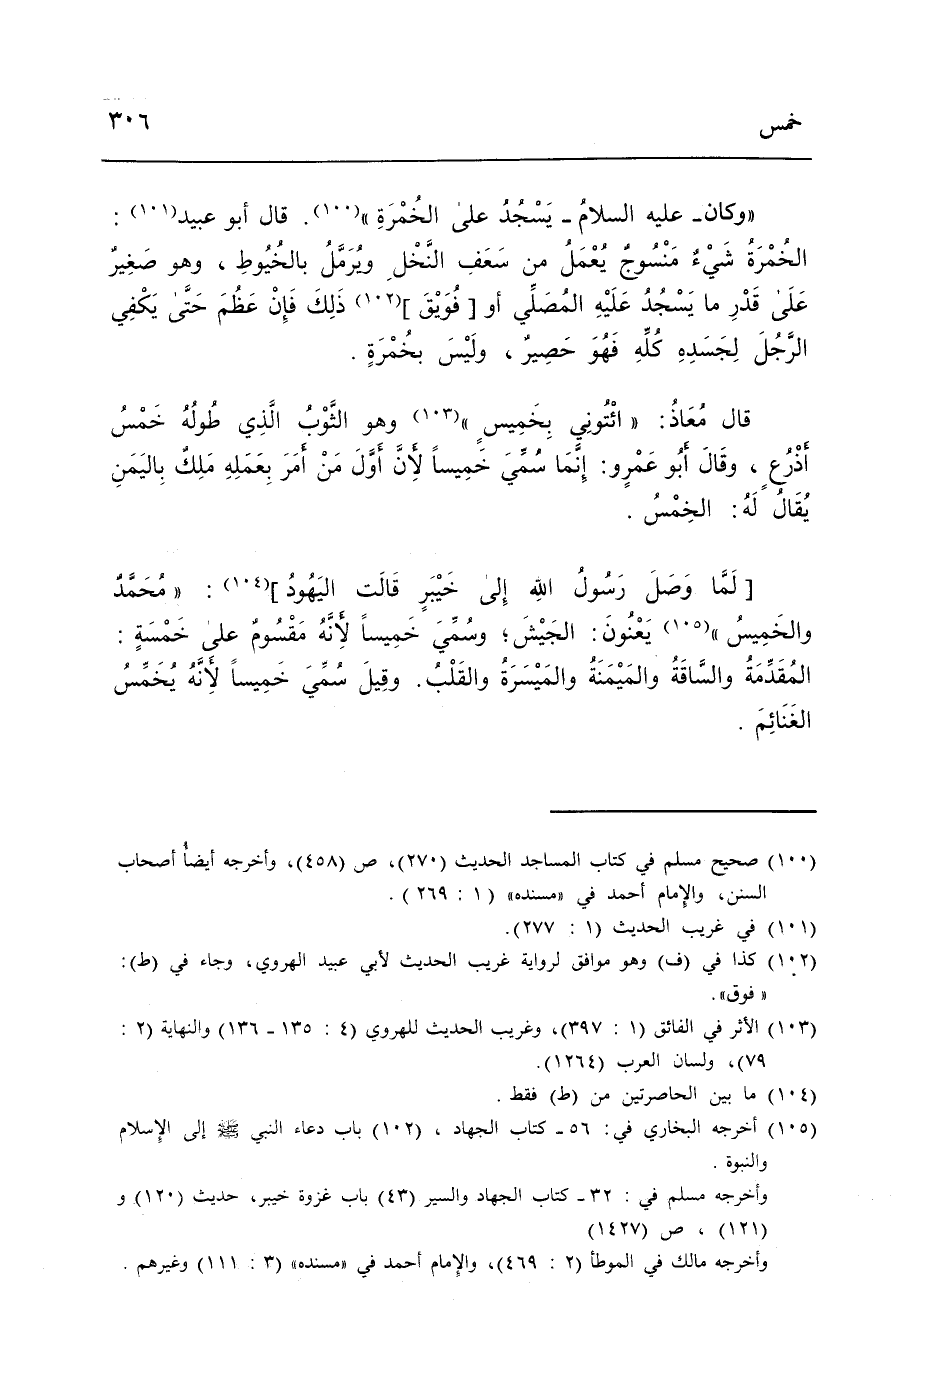 خمس ٣٠٦
«وكان ـ عليه السلامُ ـ يَسْجُدُ على الخُمْرَةِ»(١٠٠). قال أبو عبيد(١٠١) :
الخُمْرَةُ شَيْءٌ مَنْسُوجٌ يُعْمَلُ من سَعَفِ النَّخْلِ ويُرَمَّلُ بالخُيُوطِ ، وهو صَغِيرٌ
عَلَىٰ قَدْرِ ما يَسْجُدُ عَلَيْهِ المُصَلِّي أو [ فُوَيْقَ ](١٠٢) ذَلِكَ فَإِنْ عَظُمَ حَتَّىٰ يَكْفِي
الرَّجُلَ لِجَسَدِهِ كُلِّهِ فَهُوَ حَصِيرٌ ، ولَيْسَ بخُمْرَةٍ .
قال مُعَاذُ : « ائْتُونِي بِخَمِيسٍ »(١٠٣) وهو الثَّوْبُ الَّذِي طُولُهُ خَمْسُ
أَذْرُعٍ ، وقَالَ أَبُو عَمْرٍو : إِنَّمَا سُمِّيَ خَمِيساً لِأَنَّ أَوَّلَ مَنْ أَمَرَ بِعَمَلِهِ مَلِكٌ بِاليَمَنِ
يُقَالُ لَهُ : الخِمْسُ .
[ لَمَّا وَصَلَ رَسُولُ اللهِ إِلىٰ خَيْبَرٍ قَالَت اليَهُودُ ](١٠٤) : « مُحَمَّدٌ
والخَمِيسُ »(١٠٥) يَعْنُونَ : الجَيْشَ ؛ وسُمِّيَ خَمِيساً لِأَنَّهُ مَقْسُومٌ علىٰ خَمْسَةٍ :
المُقَدِّمَةُ والسَّاقَةُ والمَيْمَنَةُ والمَيْسَرَةُ والقَلْبُ . وقِيلَ سُمِّيَ خَمِيساً لِأَنَّهُ يُخَمِّسُ
الغَنَائِمَ .
(١٠٠) صحيح مسلم في كتاب المساجد الحديث (٢٧٠)، ص (٤٥٨)، وأخرجه أيضاً أصحاب
السنن، والإمام أحمد في «مسنده» ( ١ : ٢٦٩ ) .
(١٠١) في غريب الحديث (١ : ٢٧٧).
(١٠٢) كذا في (ف) وهو موافق لرواية غريب الحديث لأبي عبيد الهروي، وجاء في (ط) :
« فوق».
(١٠٣) الأثر في الفائق (١ : ٣٩٧)، وغريب الحديث للهروي (٤ : ١٣٥ ـ ١٣٦) والنهاية (٢ :
٧٩)، ولسان العرب (١٢٦٤).
(١٠٤) ما بين الحاصرتين من (ط) فقط .
(١٠٥) أخرجه البخاري في : ٥٦ ـ كتاب الجهاد ، (١٠٢) باب دعاء النبي ﷺ إلى الإسلام
والنبوة .
وأخرجه مسلم في : ٣٢ ـ كتاب الجهاد والسير (٤٣) باب غزوة خيبر، حديث (١٢٠) و
(١٢١) ، ص (١٤٢٧)
وأخرجه مالك في الموطأ (٢ : ٤٦٩)، والإمام أحمد في «مسنده» (٣ : ١١١) وغيرهم .